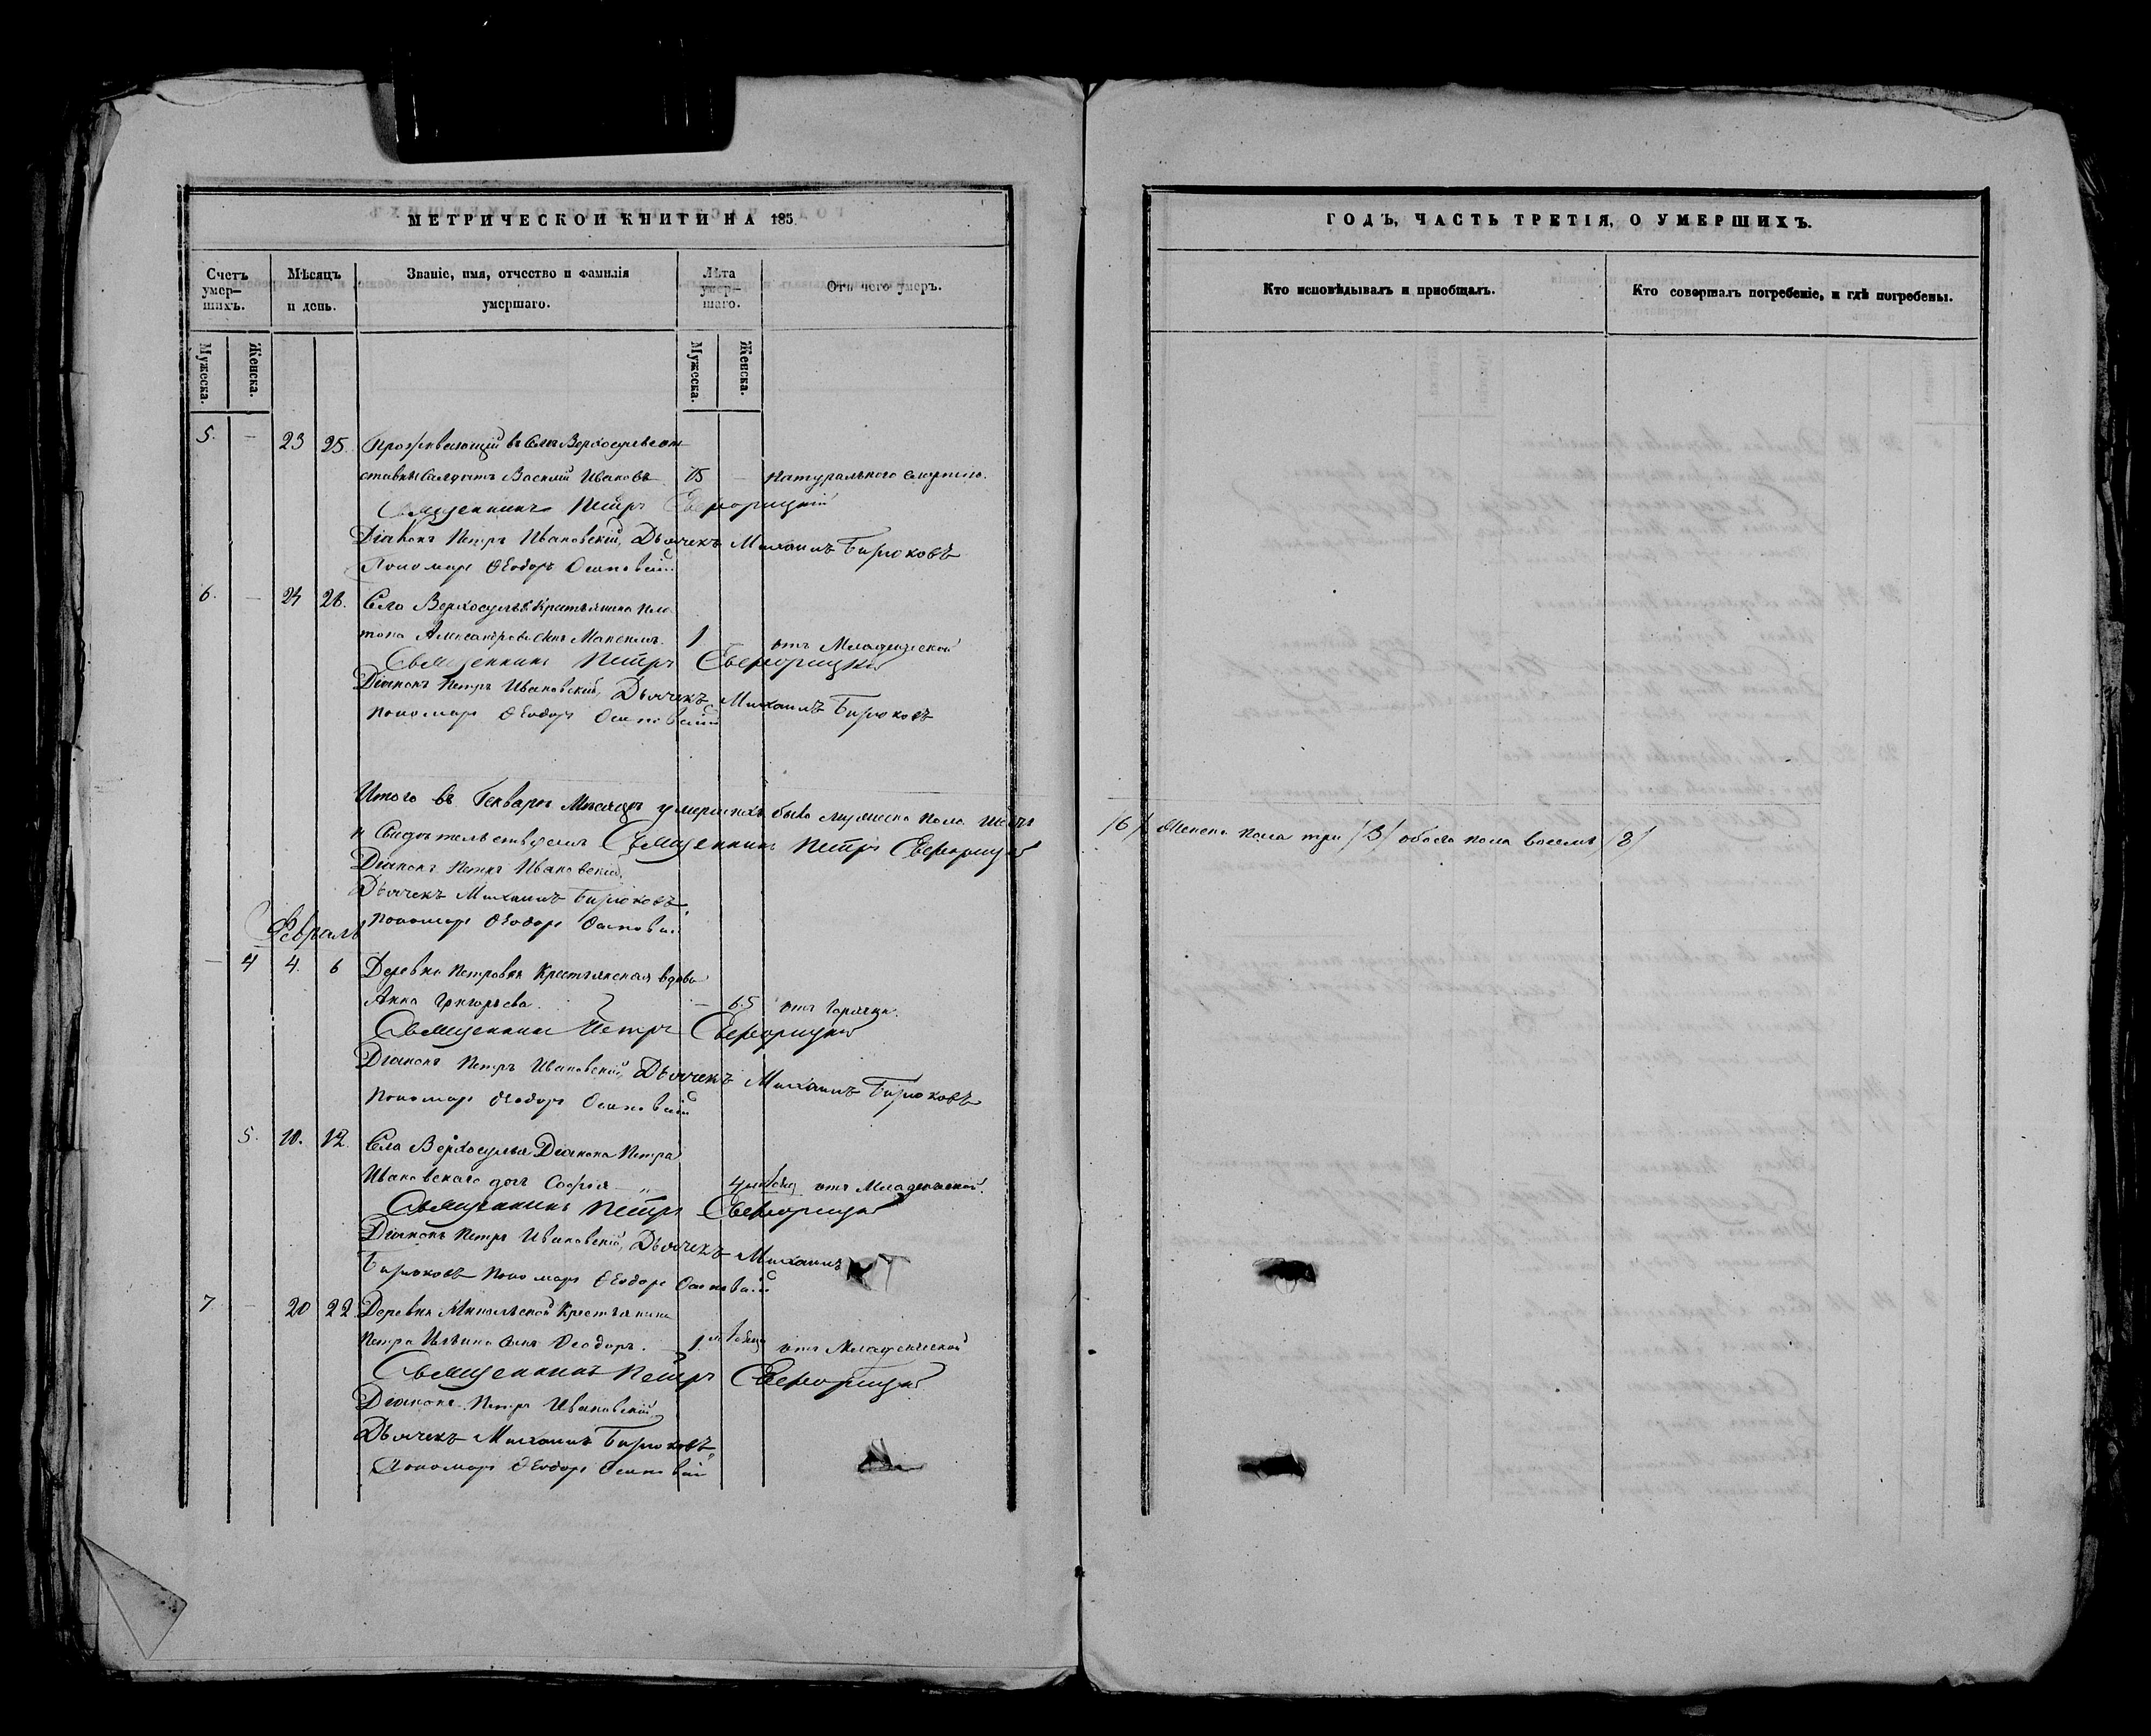 МЕТРИЧЕСКОЙ КНИГИ НА 185
Счетъ умер-шихъ.
Мѣсяцъ и день.
Званіе, имя, отчество и фамилія умершаго.
Лѣта умер-шаго.
Отъ чего умеръ.
Мужеска.
Женска.
Мужеска.
Женска.
5. — 23 25. Проживающій въ Селѣ Верхосульѣ от
ставный Салдатъ Василій Ивановъ 75 — Натуральною смертію.
Священникъ Петръ
Діаконъ Петръ Ивановскій, Дьячекъ Михаилъ Бирюковъ
Пономарь Ѳеодоръ Осиповскій
6. — 24 26. Села Верхосулья Крестьянина Пла
тона Александрова сынъ 1 отъ Младенческой
Священникъ Петръ
Діаконъ Петръ Ивановскій, Дьячекъ Михаилъ Бирюковъ
Пономарь Ѳеодоръ Осиповскій
Итого въ Генварѣ Мѣсяцѣ умершихъ было мужеска пола шесть
и Священникъ Петръ
Діаконъ Петръ Ивановскій,
Дьячекъ Михаилъ Бирюковъ,
Пономарь Ѳеодоръ Осиповскій
Февраль
— 4 4. 6 Деревни Петровки Крестьянская вдова
Анна Григорьева. — 65 отъ Горячки.
Священникъ Петръ
Діаконъ Петръ Ивановскій, Дьячекъ Михаилъ Бирюковъ
Пономарь Ѳеодоръ Осиповскій
5. 10. 12. Села Верхосулья Діакона Петра
Ивановскаго дочь Софія отъ Младенческой.
Священникъ Петръ
Діаконъ Петръ Ивановскій, Дьячекъ Михаилъ
Бирюковъ Пономарь Ѳеодоръ Осиповскій
7 — 20 22 Деревни Крестьянина
Петра Ильина сынъ Ѳеодоръ. 1 отъ Младенческой
Священникъ Петръ
Діаконъ Петръ Ивановскій
Дьячекъ Михаилъ Бирюковъ
Пономарь Ѳеодоръ Осиповскій
ГОДЪ, ЧАСТЬ ТРЕТІЯ, О УМЕРШИХЪ.
Кто исповѣдывалъ и пріобщалъ.
Кто совершалъ погребеніе, и гдѣ погребены.
/6/ Женска пола три /3/ обоего пола восемь /8/